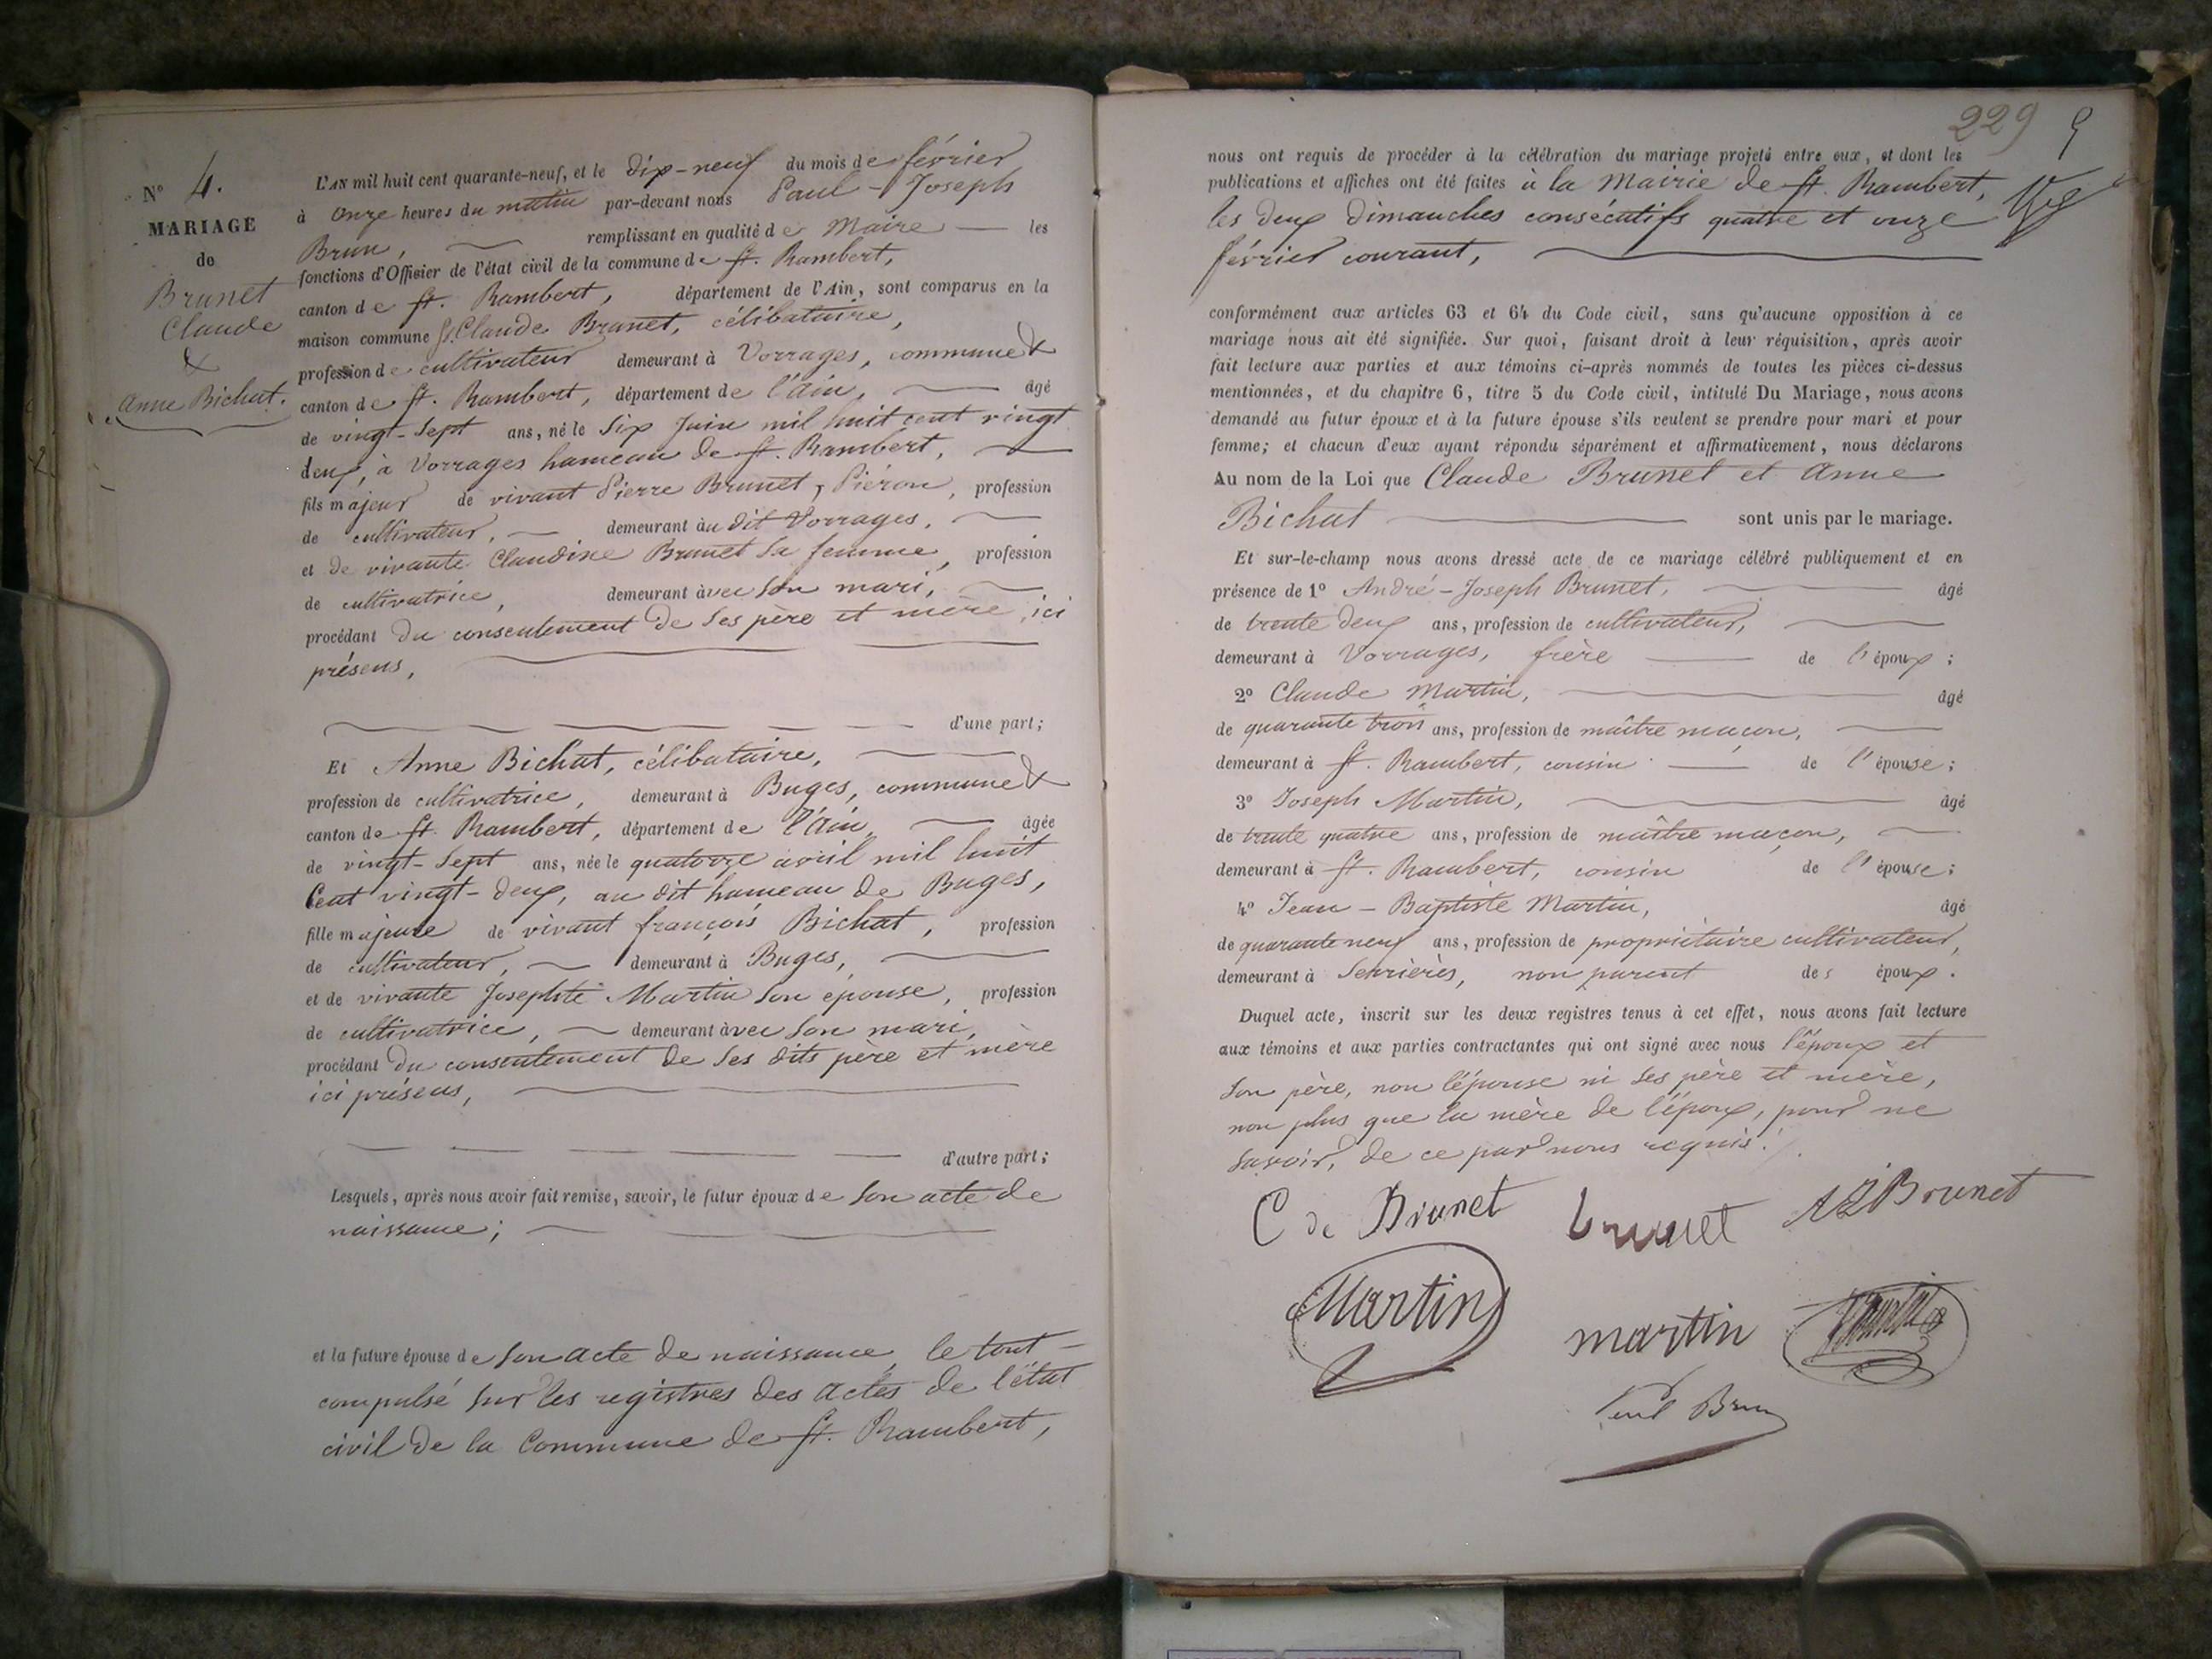 N° 4.
MARIAGE
de
Brunet
Claude
&
Anne Bichat.
L'AN mil huit cent quarante-neuf, et le dix-neuf du mois de février
à onze heures du matin par-devant nous Paul-Joseph
Brun, remplissant en qualité de Maire les
fonctions d'Officier de l'état civil de la commune de St. Rambert,
canton de St. Rambert, département de l'Ain, sont comparus en la
maison commune Claude Brunet, célibataire,
profession de cultivateur demeurant à Vorrages, commune &
canton de St. Rambert, département de l'Ain, âgé
de vingt-sept ans, né le six Juin mil huit cent vingt
deux, à Vorrages hameau de St. Rambert,
fils majeur de vivant Pierre Brunet, Piéron, profession
de cultivateur, demeurant àu dit Vorrages,
et de vivante Claudine Brunet sa femme, profession
de cultivatrice, demeurant àvec son mari,
procédant du consentement de ses père et mère, ici
présens,
d'une part;
Et Anne Bichat, célibataire,
profession de cultivatrice, demeurant à Buges, commune &
canton de St. Rambert, département de l'Ain, âgée
de vingt-sept ans, née le quatorze avril mil huit
Cent vingt-deux, au dit hameau de Buges,
fille majeure de vivant françois Bichat, profession
de cultivateur, demeurant à Buges,
et de vivante Josephte Martin son epouse, profession
de cultivatrice, demeurant àvec son mari,
procédant du consentement de ses dits père et mère
ici présens,
d'autre part;
Lesquels, après nous avoir fait remise, savoir, le futur époux de son acte de
naissance;
et la future épouse de son acte de naissance, le tout
compulsé sur les registres des actes de l'état
civil de la Commune de St. Rambert,
229
nous ont requis de procéder à la célébration du mariage projeté entre eux, et dont les
publications et affiches ont été faites à la Mairie de St. Rambert,
les deux dimanches consécutifs quatre et onze
février courant,
conformément aux articles 63 et 64 du Code civil, sans qu'aucune opposition à ce
mariage nous ait été signifiée. Sur quoi, faisant droit à leur réquisition, après avoir
fait lecture aux parties et aux témoins ci-après nommés de toutes les pièces ci-dessus
mentionnées, et du chapitre 6, titre 5 du Code civil, intitulé Du Mariage, nous avons
demandé au futur époux et à la future épouse s'ils veulent se prendre pour mari et pour
femme; et chacun d'eux ayant répondu séparément et affirmativement, nous déclarons
Au nom de la Loi que Claude Brunet et Anne
Bichat sont unis par le mariage.
Et sur-le-champ nous avons dressé acte de ce mariage célébré publiquement et en
présence de 1° André-Joseph Brunet, âgé
de trente deux ans, profession de cultivateur,
demeurant à Vorrages, frère de l'époux;
2° Claude Martin, âgé
de quarante trois ans, profession de maître maçon,
demeurant à St. Rambert, cousin de l'épouse;
3° Joseph Martin, âgé
de trente quatre ans, profession de maître maçon,
demeurant à St. Rambert, cousin de l'épouse;
4° Jean-Baptiste Martin, âgé
de quarante neuf ans, profession de propriétaire cultivateur,
demeurant à Serrières, non parent des époux.
Duquel acte, inscrit sur les deux registres tenus à cet effet, nous avons fait lecture
aux témoins et aux parties contractantes qui ont signé avec nous l'époux et
son père, non l'épouse ni ses père et mère,
non plus que la mère de l'époux, pour ne
savoir, de ce par nous requis.
C de Brunet brunet AJ Brunet
Martin martin
Paul Brun